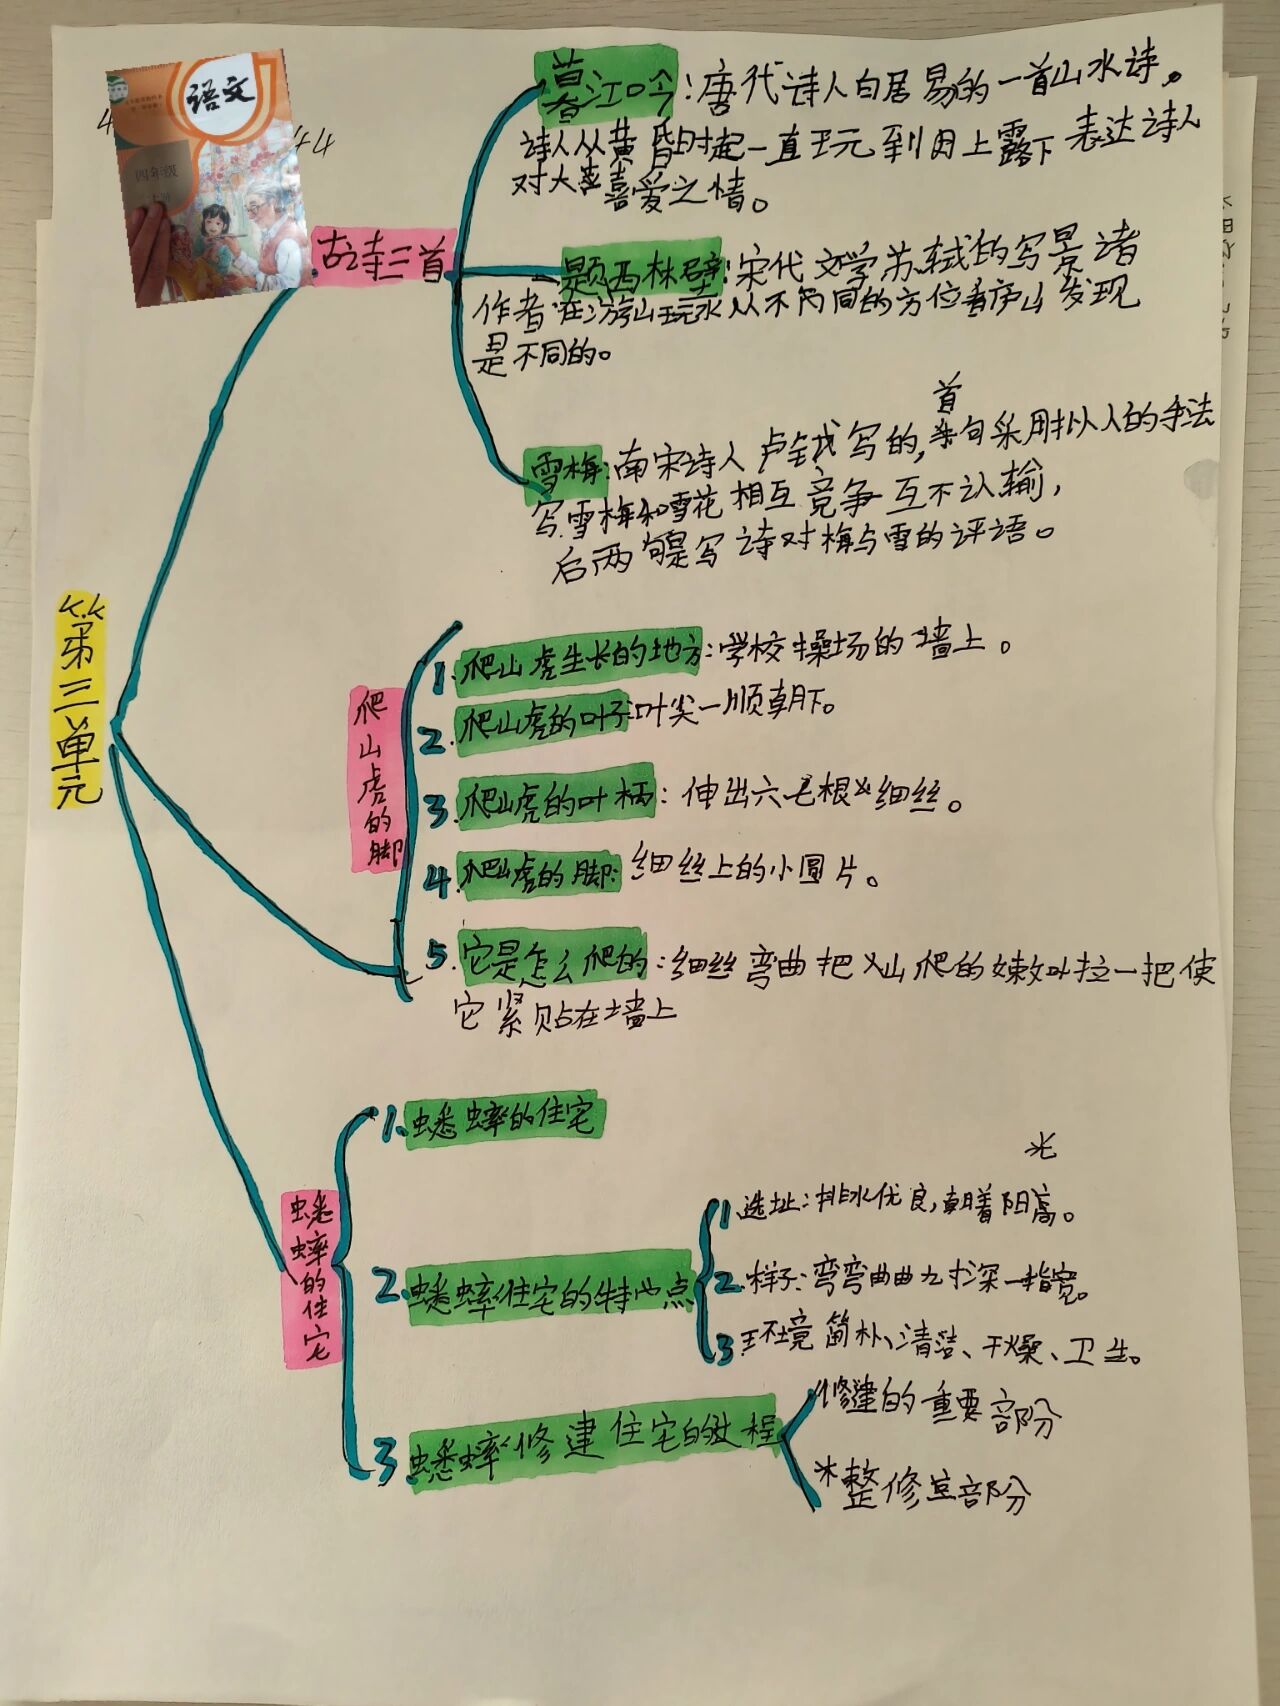 语文
四年级
44
第三单元
古诗三首
暮江吟:唐代诗人白居易的一首山水诗。
诗人从黄昏时起一直玩到月上露下 表达诗人
对大喜爱之情。
题西林壁:宋代文学苏轼的写景诸
作者在游山玩水从不同的方位看庐山发现
是不同的。
首
雪梅:南宋诗人卢钺写的,句采用拟人的手法
写雪梅和雪花相互竞争互不认输,
后两句是写诗对梅与雪的评语。
爬山虎的脚
1.爬山虎生长的地方:学校操场的墙上。
2.爬山虎的叶子:叶尖一顺朝下。
3.爬山虎的叶柄:伸出六七根细丝。
4.爬山虎的脚:细丝上的小圆片。
5.它是怎么爬的:细丝弯曲把山爬的嫩叶拉一把使
它紧贴在墙上
蟋蟀的住宅
1.蟋蟀的住宅
2.蟋蟀住宅的特点
光
1.选址:排水优良,朝着阳。
2.样子:弯弯曲曲九寸深一指宽。
3.环境简朴、清洁、干燥、卫生。
3.蟋蟀修建住宅的过程
修建的重要部分
整修部分